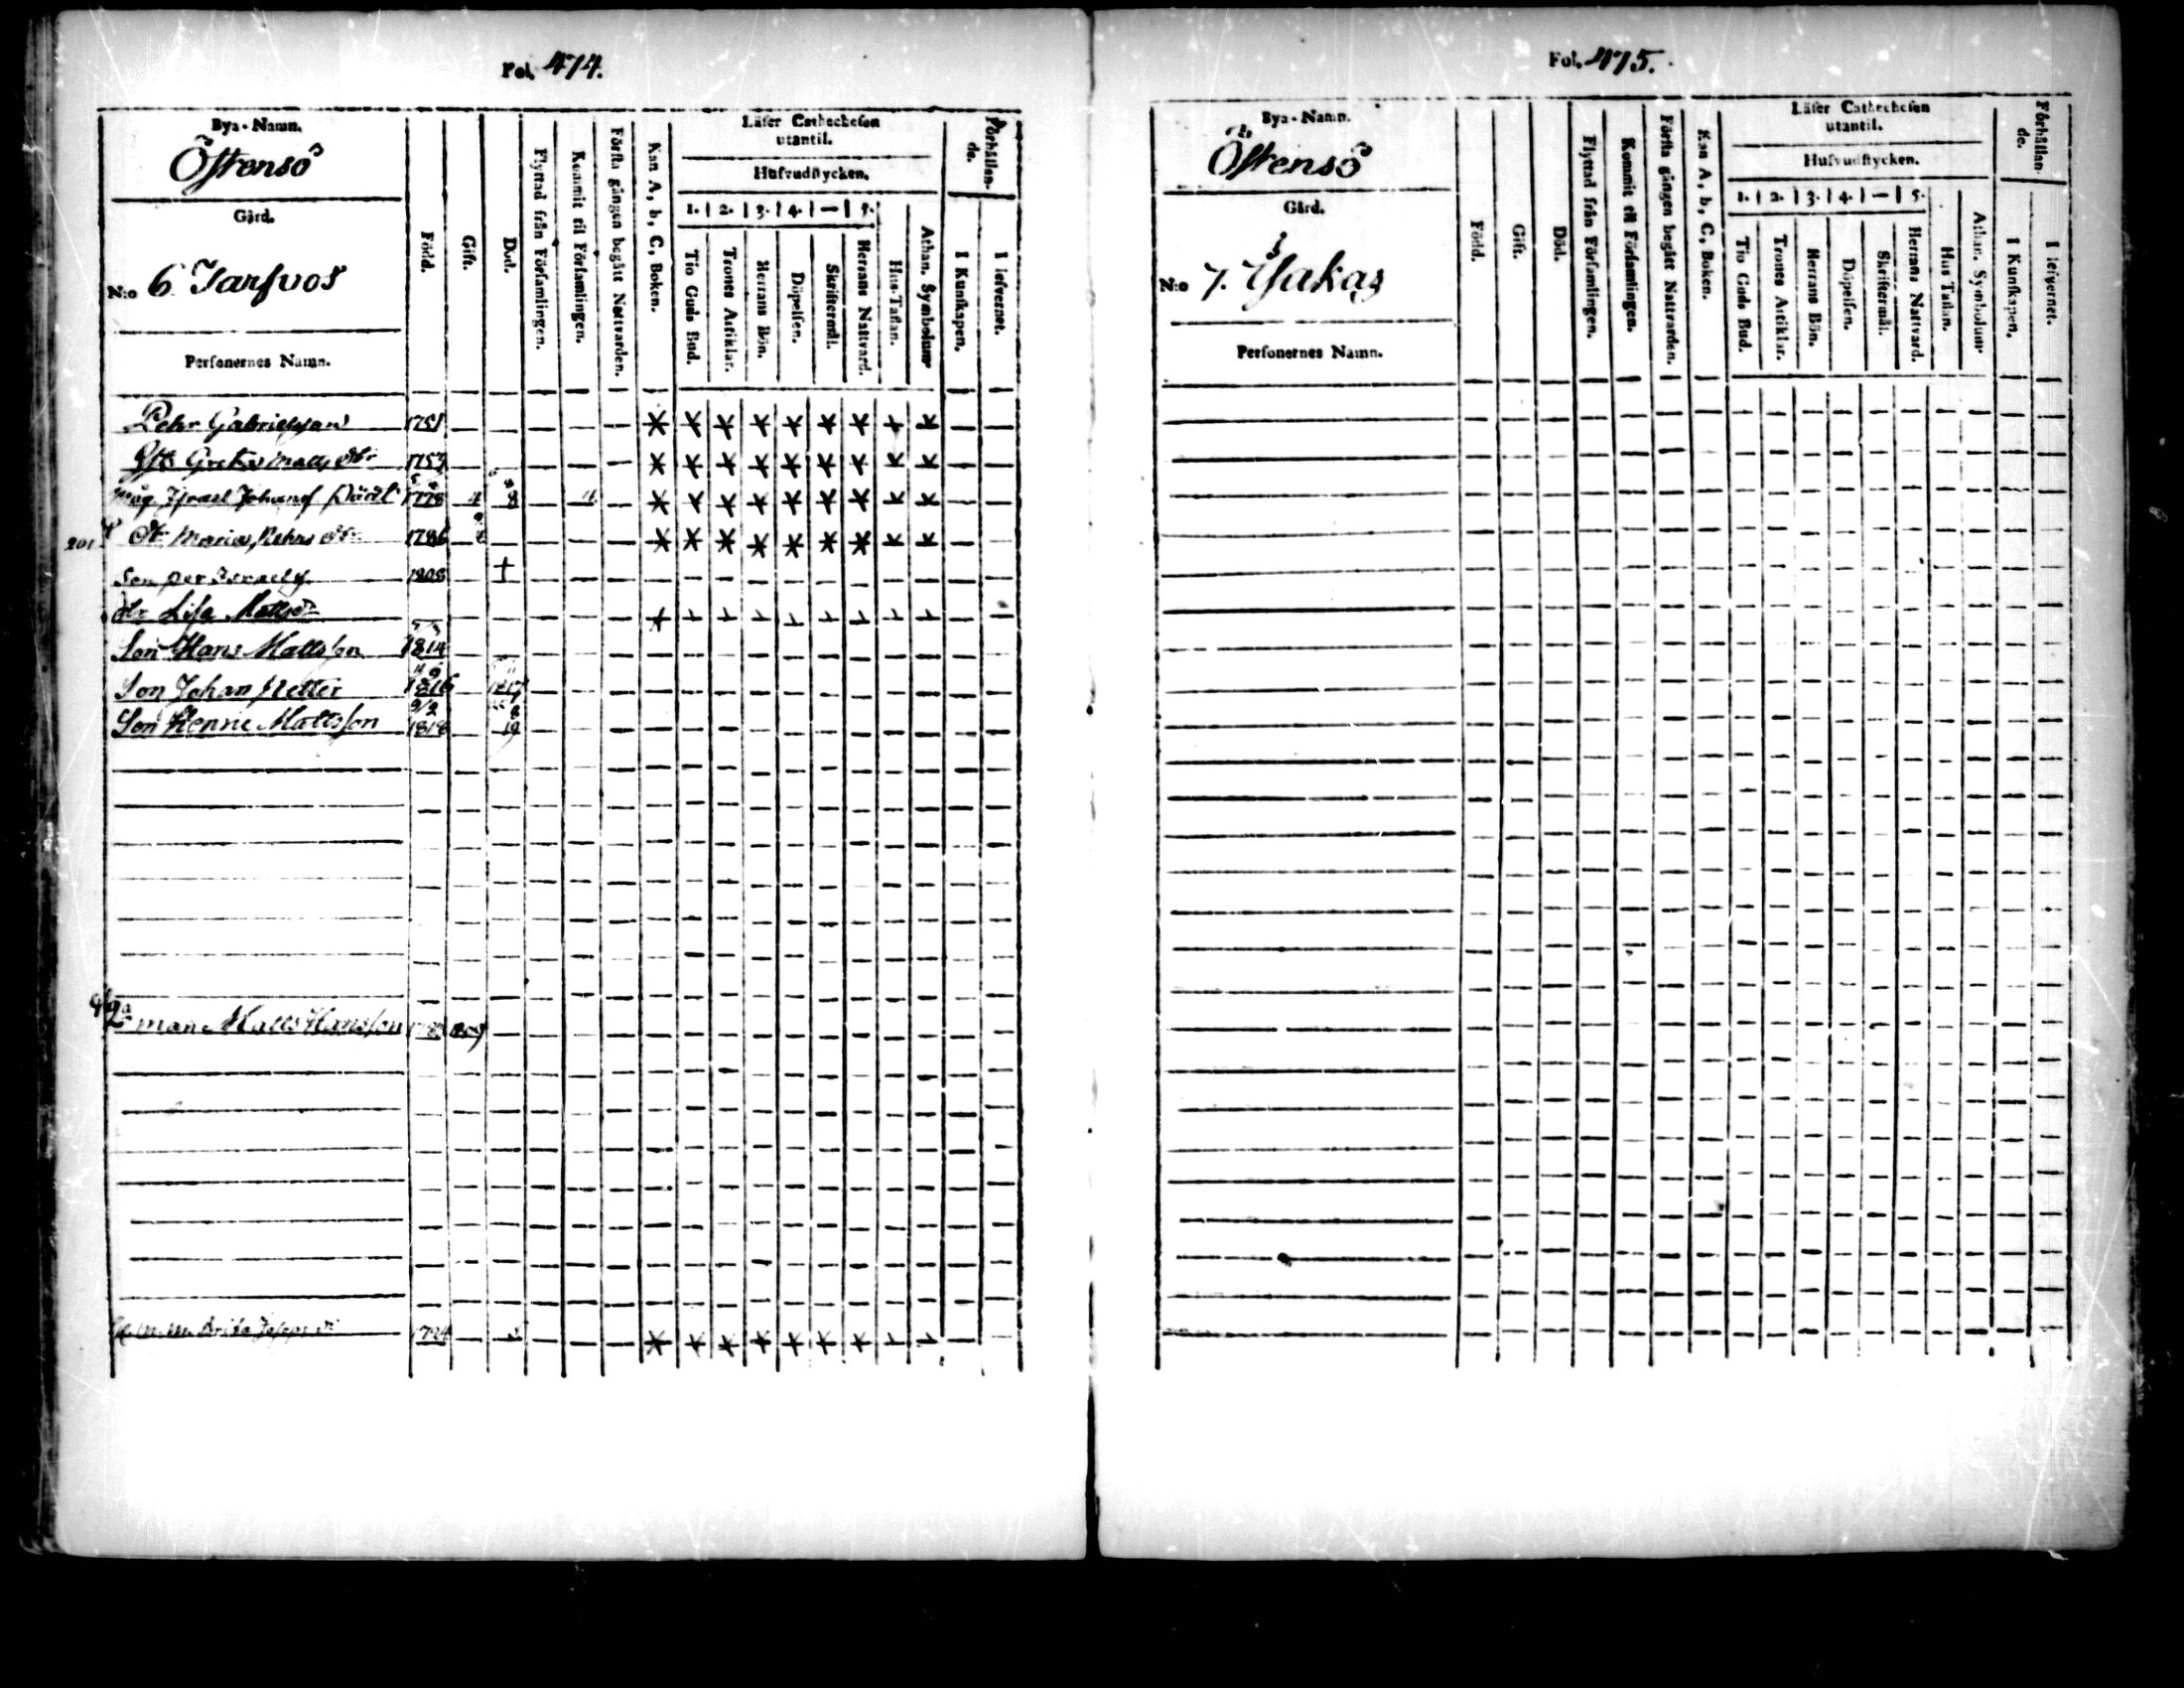 Fol. 474.
Bya-Namn.
Östensö
Gård.
N:o 6 Jarfvos
Personernes Namn.
Född.
Gift.
Död.
Flyttad från Församlingen.
Kommit til Församlingen.
Första gången begått Nattvarden.
Kan A, b, C, Boken.
Läser Cathechesen
utantil.
Hufvudstycken.
1. 2. 3. 4. — 5.
Tio Guds Bud.
Trones Artiklar.
Herrans Bön.
Döpelsen.
Skriftermål.
Herrans Nattvard.
Hus-Taflan.
Athan. Symbolum
Förhållan-
de.
I Kunskapen.
I lefvernet.
Pehr Gabrielsson 1751
Greta Matts dr
Måg Israel Johans 1778 4 8 4
201 dr Maria Pehrs dr 1786
Son per Israels 1808 +
Lisa Matts
Son Hans Mattsson 1814
Son Johan Petter 1816 1817
9/2
Son Henric Mattsson 1818 19
2 man Matts Hansson
Brita Jepps 1724
Fol. 475.
Bya-Namn.
Östensö
Gård.
N:o 7. Isakas
Personernes Namn.
Född.
Gift.
Död.
Flyttad från Församlingen.
Kommit till Församlingen.
Första gången begått Nattvarden.
Kan A, b, C, Boken.
Läser Cathechesen
utantil.
Hufvudstycken.
1. 2. 3. 4. — 5.
Tio Guds Bud.
Trones Artiklar.
Herrans Bön.
Döpelsen.
Skriftermål.
Herrans Nattvard.
Hus Taflan.
Athan. Symbolum
Förhållan-
de.
I Kunskapen.
I lefvernet.